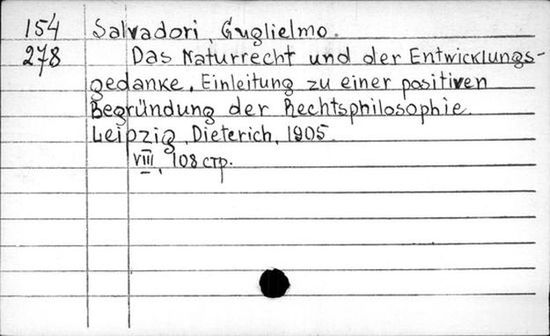 154 Salvadori, Guglielmo.
278 Das Naturrecht und der Entwicklungs-
gedanke. Einleitung zu einer positiven
Begründung der Rechtsphilosophie.
Leipzig, Dieterich, 1905.
VIII, 108 стр.